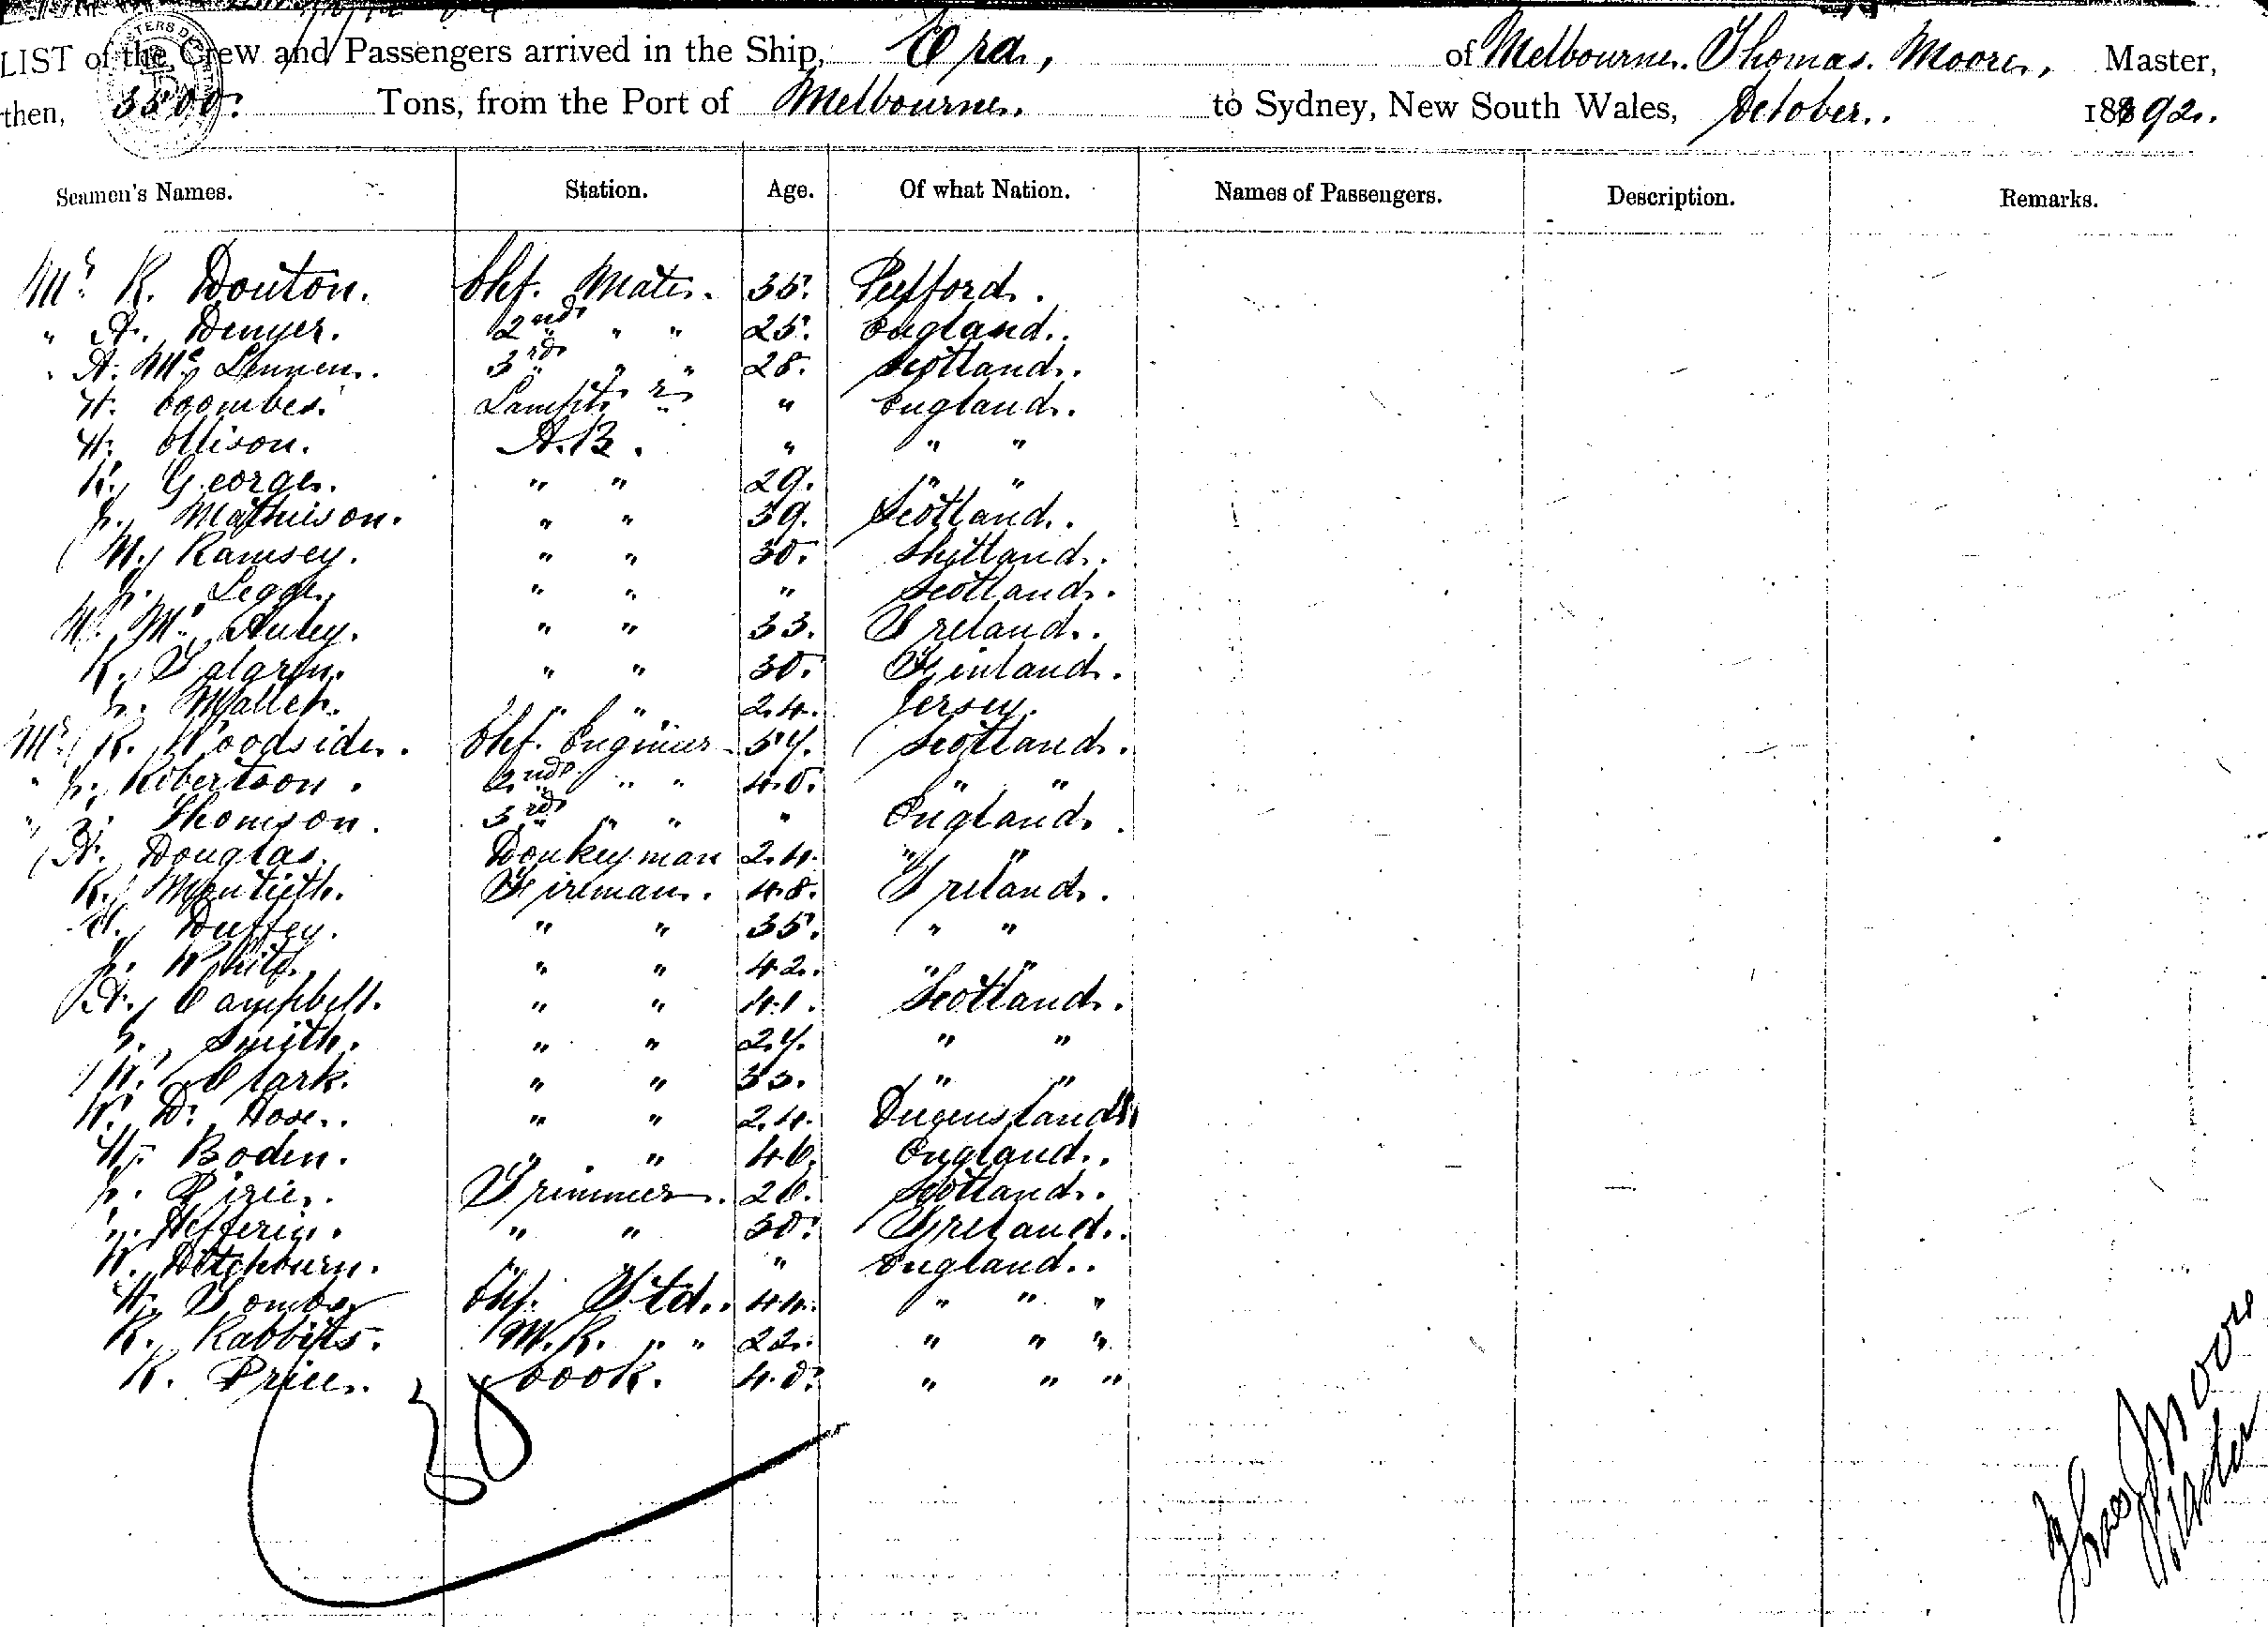 LIST of the Crew and Passengers arrived in the Ship, Era, of Melbourne. Thomas. Moore, Master,
then, 3500. Tons, from the Port of Melbourne. to Sydney, New South Wales, October. 1892.
Seamen's Names. Station. Age. Of what Nation. Names of Passengers. Description. Remarks.
Mr. R. Douton. Chf. Mate. 35.
" A. Denyer. 2nd " " 25. England.
" A. Mc Lennen. 3rd " " 28. Scotland.
H. Coombes. Lamptr " England.
H. Ellison. A.B. " " "
K. George. " " 29. " "
J. Mathieson. " " 39. Scotland.
M. Ramsey. " " 30. Shetland.
J. Legge. " " " Scotland.
W. Mc Auley. " " 33. Ireland.
K. Salgren. " " 30. Finland.
J. Mallet. " " 24. Jersey.
Mr. R. Woodside. Chf. Engineer 54. Scotland.
" J. Robertson. 2nd " " 40. " "
" J. Thomson. 3rd " " " England.
A. Douglas. Donkeyman 24. " "
R. Montieth. Fireman. 48. Ireland.
Duffey. " " 35. " "
J. White. " " 42. " "
A. Campbell. " " 41. Scotland.
J. Smith. " " 24. " "
W. Clark. " " 33. " "
W. D. Hose. " " 24. Queensland
H. Boden. " " 46. England.
J. Pirie. Trimmer. 26. Scotland.
J. Hefferin. " " 30. Ireland.
W. Ditchburn. " " " England.
H. Tombs Chf. Std. 44. " " "
R. Rabbitts. M.R. " " 22. " " "
R. Price. Cook. 40. " " "
30
Thos Moore
Master